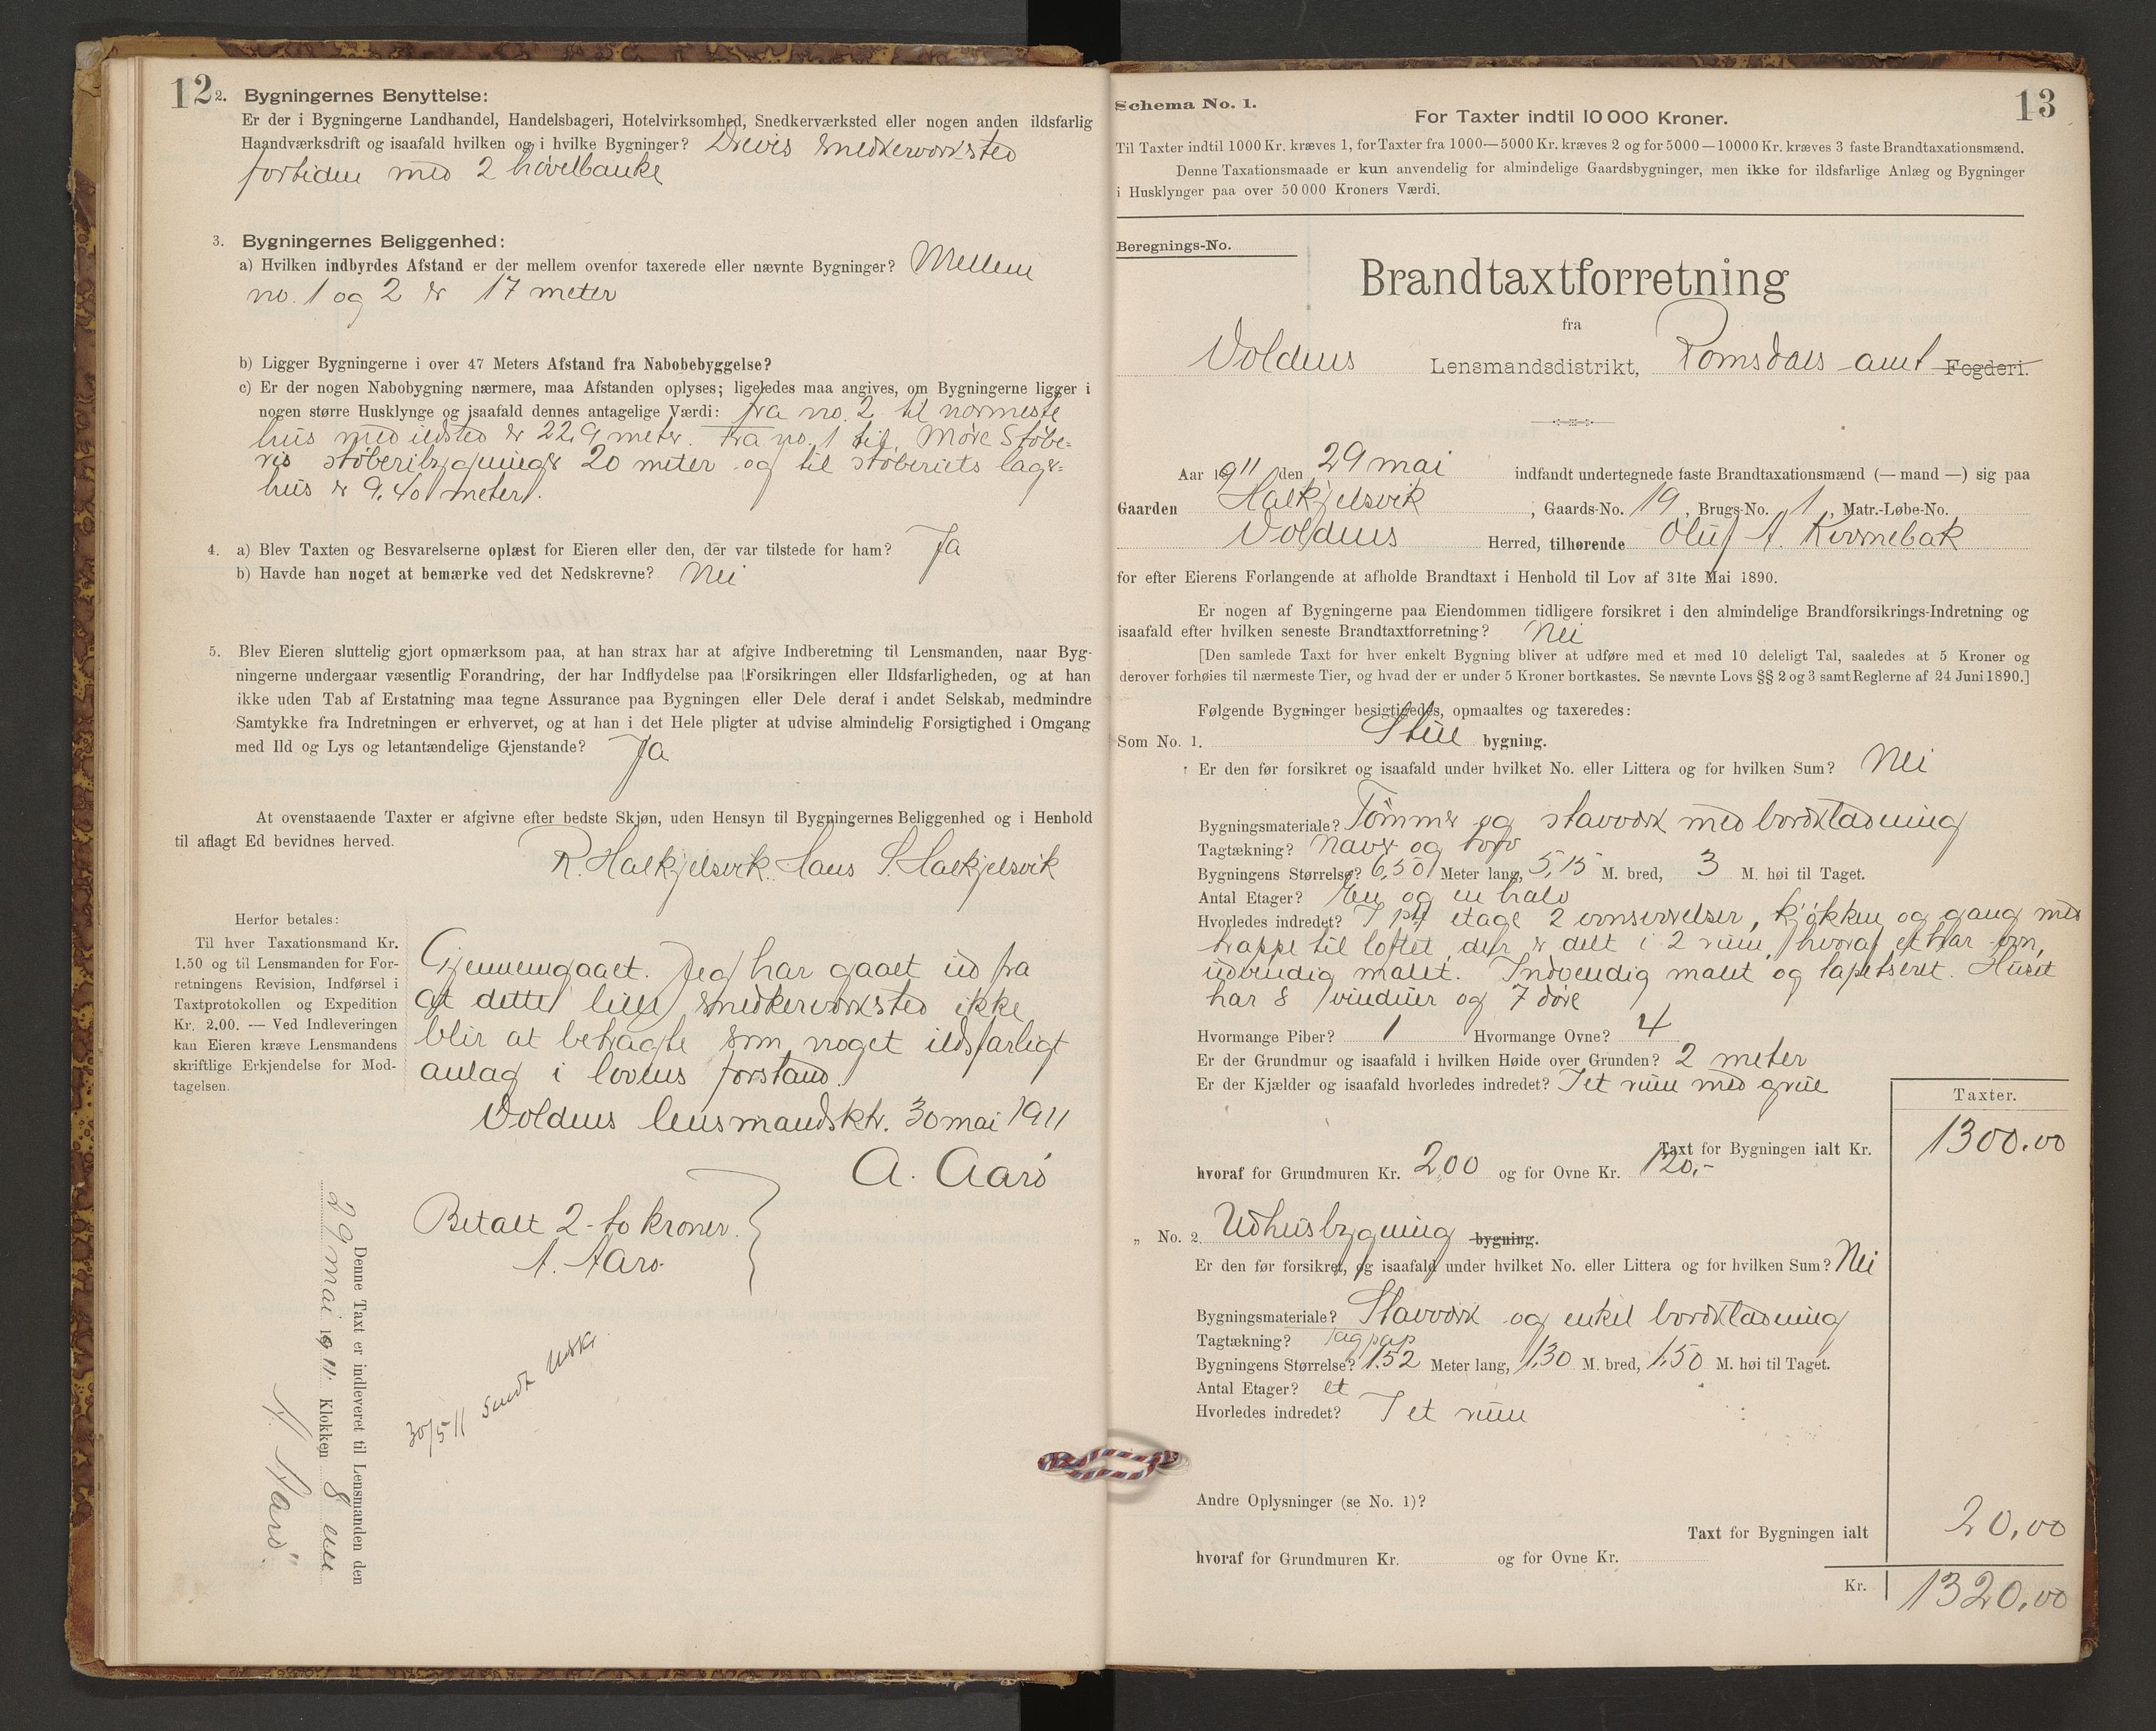 12
2. Bygningernes Benyttelse:
Er der i Bygningerne Landhandel, Handelsbageri, Hotelvirksomhed, Snedkerværksted eller nogen anden ildsfarlig
Haandværksdrift og isaafald hvilken og i hvilke Bygninger? Drives snedkerværksted
fortiden med 2 høvelbænke
3. Bygningernes Beliggenhed:
a) Hvilken indbyrdes Afstand er der mellem ovenfor taxerede eller nævnte Bygninger? Mellem
no. 1 og 2 er 17 meter
b) Ligger Bygningerne i over 47 Meters Afstand fra Nabobebyggelse?
c) Er der nogen Nabobygning nærmere, maa Afstanden oplyses; ligeledes maa angives, om Bygningerne ligger i
nogen større Husklynge og isaafald dennes antagelige Værdi: fra no. 2 til nærmeste
hus med ildsted er 22,9 meter. Fra no. 1 til Møre Støbe-
ris støberibygninger 20 meter og til støberiets lager-
hus er 9,40 meter.
4. a) Blev Taxten og Besvarelserne oplæst for Eieren eller den, der var tilstede for ham? Ja
b) Havde han noget at bemærke ved det Nedskrevne? Nei
5. Blev Eieren sluttelig gjort opmærksom paa, at han strax har at afgive Indberetning til Lensmanden, naar Byg-
ningerne undergaar væsentlig Forandring, der har Indflydelse paa Forsikringen eller Ildsfarligheden, og at han
ikke uden Tab af Erstatning maa tegne Assurance paa Bygningen eller Dele deraf i andet Selskab, medmindre
Samtykke fra Indretningen er erhvervet, og at han i det Hele pligter at udvise almindelig Forsigtighed i Omgang
med Ild og Lys og letantændelige Gjenstande? Ja
At ovenstaaende Taxter er afgivne efter bedste Skjøn, uden Hensyn til Bygningernes Beliggenhed og i Henhold
til aflagt Ed bevidnes herved.
R. Halkjelsvik. Hans S. Halkjelsvik
Herfor betales:
Til hver Taxationsmand Kr.
1.50 og til Lensmanden for For-
retningens Revision, Indførsel i
Taxtprotokollen og Expedition
Kr. 2.00. — Ved Indleveringen
kan Eieren kræve Lensmandens
skriftlige Erkjendelse for Mod-
tagelsen.
Gjennemgaaet. Jeg har gaaet ud fra
at dette lille snedkerværksted ikke
blir at betragte som noget ildsfarligt
anlæg i lovens forstand.
Voldens lensmandsktr. 30 mai 1911
A. Aarø
Betalt 2 - to kroner.
A. Aarø.
30/5 11 Sendt
Denne Taxt er indleveret til Lensmanden den
29 mai 1911. Klokken 8 em
A. Aarø
13
Schema No. 1.
For Taxter indtil 10 000 Kroner.
Til Taxter indtil 1000 Kr. kræves 1, for Taxter fra 1000—5000 Kr. kræves 2 og for 5000—10000 Kr. kræves 3 faste Brandtaxationsmænd.
Denne Taxationsmaade er kun anvendelig for almindelige Gaardsbygninger, men ikke for ildsfarlige Anlæg og Bygninger
i Husklynger paa over 50 000 Kroners Værdi.
Beregnings-No.
Brandtaxtforretning
fra
Voldens Lensmandsdistrikt, Romsdals amt Fogderi.
Aar 1911 den 29 mai indfandt undertegnede faste Brandtaxationsmænd (— mand —) sig paa
Gaarden Halkjelsvik, Gaards-No. 19, Brugs-No. 1, Matr.-Løbe-No.
Voldens Herred, tilhørende Oluf A. Kvernebak
for efter Eierens Forlangende at afholde Brandtaxt i Henhold til Lov af 31te Mai 1890.
Er nogen af Bygningerne paa Eiendommen tidligere forsikret i den almindelige Brandforsikrings-Indretning og
isaafald efter hvilken seneste Brandtaxtforretning? Nei
[Den samlede Taxt for hver enkelt Bygning bliver at udføre med et med 10 deleligt Tal, saaledes at 5 Kroner og
derover forhøies til nærmeste Tier, og hvad der er under 5 Kroner bortkastes. Se nævnte Lovs §§ 2 og 3 samt Reglerne af 24 Juni 1890.]
Følgende Bygninger besigtigedes, opmaaltes og taxeredes:
Som No. 1. Stue bygning.
Er den før forsikret og isaafald under hvilket No. eller Littera og for hvilken Sum? Nei
Bygningsmateriale? Tømmer og stavværk med bordklædning
Tagtækning? Næver og torv
Bygningens Størrelse? 6,50 Meter lang, 5,15 M. bred, 3 M. høi til Taget.
Antal Etager? En og en halv
Hvorledes indredet? I 1ste etage 2 ovnsværelser, kjøkken og gang med
trappe til loftet, der er delt i 2 rum, hvoraf et har ovn,
udvendig malet. Indvendig malet og tapetseret. Huset
har 8 vinduer og 7 døre
Hvormange Piber? 1 Hvormange Ovne? 4
Er der Grundmur og isaafald i hvilken Høide over Grunden? 2 meter
Er der Kjælder og isaafald hvorledes indredet? I et rum med grue
Taxter.
Taxt for Bygningen ialt Kr. 1300.00
hvoraf for Grundmuren Kr. 200 og for Ovne Kr. 120,-
„ No. 2. Udhusbygning bygning.
Er den før forsikret, og isaafald under hvilket No. eller Littera og for hvilken Sum? Nei
Bygningsmateriale? Stavværk og enkel bordklædning
Tagtækning? Tagpap
Bygningens Størrelse? 1.52 Meter lang, 1,30 M. bred, 1,50 M. høi til Taget.
Antal Etager? et
Hvorledes indredet? I et rum
Andre Oplysninger (se No. 1)?
Taxt for Bygningen ialt 20,00
hvoraf for Grundmuren Kr. og for Ovne Kr.
Kr. 1320,00